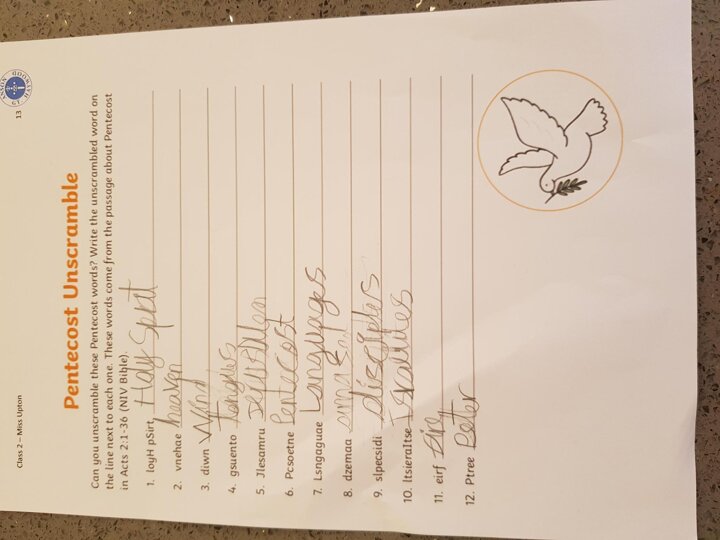 Class 2 – Miss Upton
13
Pentecost Unscramble
Can you unscramble these Pentecost words? Write the unscrambled word on
the line next to each one. These words come from the passage about Pentecost
in Acts 2:1-36 (NIV Bible).
1. loyH pSirt Holy Spirit
2. vnehae heaven
3. diwn Wind
4. gsuento Tongues
5. Jlesamru
6. Pcsoetne Pentecost
7. Lsngaguae Languages
8. dzemaa
9. slpecsidi disciplers
10. ltsieraltse Iscalites
11. eirf fire
12. Ptree Peter